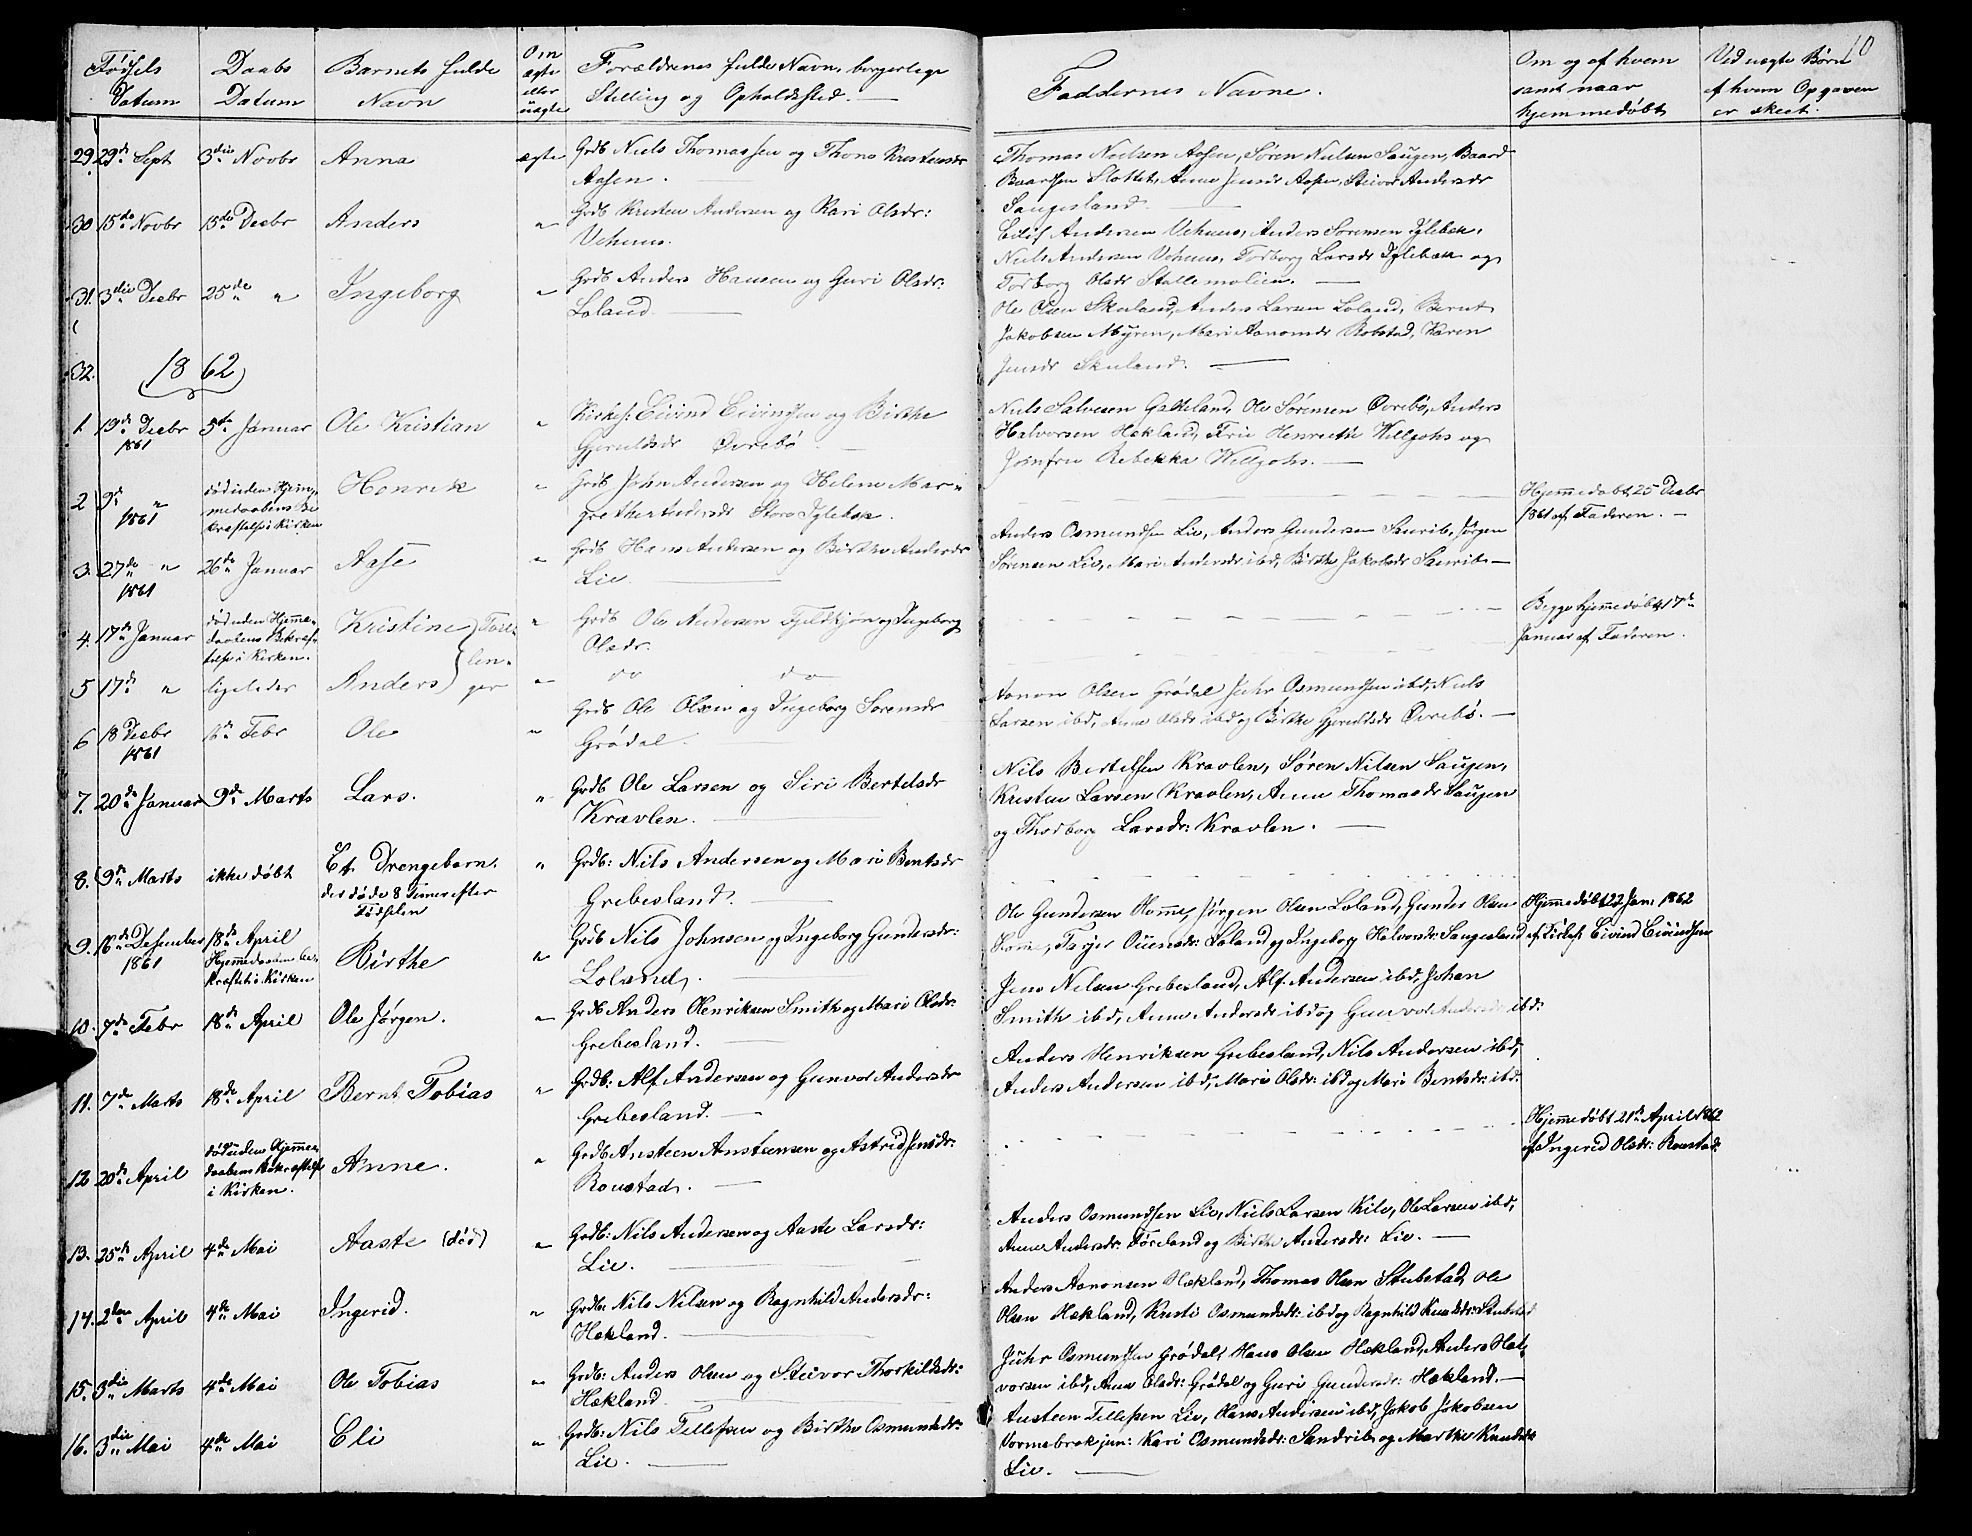 10
Fødsels Datum
Daabs Datum
Barnets fulde Navn
Om ægte eller uægte
Forældrenes fulde Navn, borgerlige Stilling og Opholdssted.
Faddernes Navne.
Om og af hvem samt naar hjemmedøbt
Ved uægte Børn af hvem Opgaven er skeet.
29. 29de Sept 3die Novbr Anna ægte Grdb Niels Thomassen og Thone Kristensdr
Aasen.
Thomas Nielsen Aasen, Søren Nielsen Saugen, Baard
Baardsen Slottet, Anne Jensdr Aasen, Steivor Andersdr
Saugesland.
30 15de Novbr 15de Decbr Anders " Grdb Kristen Andersen og Kari Olsdr:
Vehuus.
Andersen Vehuus, Anders Sørensen Iglebæk,
Niels Andersen Vehuus, Torborg Larsdr Iglebæk og
Torborg Olsdr Stallemolien.
31. 3die Decbr 25de " Ingeborg " Grdb Anders Hansen og Guri Olsdr:
Loland
Ole Olsen Skuland, Anders Larsen Loland, Bernt
Jakobsen Myren, Mari Aanonsdr Robstad, Karen
Jensdr Skuland.
32. 1862
1 19de Decbr 1861 5te Januar Ole Kristian " Kirkes: Eivind Eivindsen og Birthe
Gjeruldsdr Øvrebø
Niels Salvesen Gatteland, Ole Sørensen Øvrebø, Anders
Halvorsen Hækland, Frue Henriette Willgohs og
Jomfru Rebekka Willgohs.
2 9de " 1861 død uden Hjemmedaabens Bekræftelse i Kirken Henrik " Grdb John Andersen og Helene Mar-
grethe Andersdr Store Iglebæk.
Hjemmedøbt 25 Decbr
1861 af Faderen.
3. 27de " 1861 26de Januar Aase " Grdb Hans Andersen og Birthe Andersdr
Lie
Anders Osmundsen Lie, Anders Gundersen Sanrib, Jørgen
Sørensen Lie, Mari Andersdr ibd, Birthe Jakobsdr Sanrib
4. 17de Januar død uden Hjemmedaabens Bekræftelse i Kirken. Kristine } Tvillinger " Grdb Ole Andersen Fjeldkjøn og Ingeborg
Olsdr.
Begge hjemmedøbt 17de
Januar af Faderen.
5 17de " ligeledes Anders " do do
6 18 Decbr 1861 16de Febr Ole " Grdb Ole Olsen og Ingeborg Sørensdr
Grødal.
Aanon Olsen Grødal Juhr Osmundsen ibd, Niels
Larsen ibd, Anne Olsdr ibd og Birthe Gjeruldsdr Øvrebø.
7. 20de Januar 9de Marts Lars. " Grdb Ole Larsen og Siri Bertelsdr
Kravlen.
Nils Bertelsen Kravlen, Søren Nilsen Saugen,
Kristen Larsen Kravlen, Anne Thomasdr Saugen
og Thorborg Larsdr: Kravlen.
8. 9de Marts ikke døbt Et Drengebarn. der døde 8 Timer efter Fødselen " Grdb: Nils Andersen og Mari Bentsdr
Grebesland.
9. 16de Desember 1861 18de April Hjemmedaaben bekræftet i Kirken Birthe " Grdb Nils Johnsen og Ingeborg Gundersdr:
Loland.
Ole Gundersen Homme, Jørgen Olsen Loland, Gunder Olsen
Homme, Tarjer Ouensdr: Loland og Ingeborg Halvorsdr: Saugesland
Hjemmedøbt 22 Jan: 1862
af Kirkes: Eivind Eivindsen
10. 7de Febr 18de April Ole Jørgen. " Grdb Anders Henriksen Smith og Mari Olsdr:
Grebesland.
Jens Nilsen Grebesland, Alf Andersen ibd, Johan
Smith ibd, Anne Andersdr ibd og Gunvor Andersdr ibd:
11. 7de Marts 18de April Bernt Tobias " Grdb: Alf Andersen og Gunvor Andersdr
Grebesland.
Anders Henriksen Grebesland, Nils Andersen ibd,
Anders Andersen ibd, Mari Olsdr: ibd og Mari Bentsdr: ibd:
12 20de April død uden Hjemmedaabens Bekræftelse i Kirken. Anne. " Grdb Ansteen Ansteensen og Astrid Jensdr:
Roustad.
Hjemmedøbt 21de April 1862
af Ingerid Olsdr: Roustad:
13. 25de April 4de Mai Aaste (død) " Grdb: Nils Andersen og Aaste Larsdr:
Lie.
Anders Osmundsen Lie, Niels Larsen Kile, Ole Larsen ibd,
Anne Andersdr: Føreland og Birthe Andersdr: Lie.
14. 2den April 4de Mai Ingerid. " Grdb: Nils Nilsen og Ragnhild Andersdr:
Hækland.
Anders Aanonsen Hækland, Thomas Olsen Stubstad, Ole
Olsen Hækland, Kristi Osmundsdr: ibd og Ragnhild Knudsdr: Stubstad
15. 3die Marts 4de Mai Ole Tobias " Grdb: Anders Olsen og Steivor Thorkildsdr:
Hækland
Juhr Osmundsen Grødal, Hans Olsen Hækland, Anders Hal-
vorsen ibd, Anne Olsdr: Grødal og Guri Gundersdr: Hækland.
16. 3die Mai 4de Mai Eli " Grdb: Nils Tellefsen og Birthe Osmundsdr:
Lie.
Ansteen Tellefsen Lie, Hans Andersen ibd, Jakob Jakobsen
Vormebrok jun: Kari Osmundsdr: Sandrib og Marthe Knudsdr
Lie.